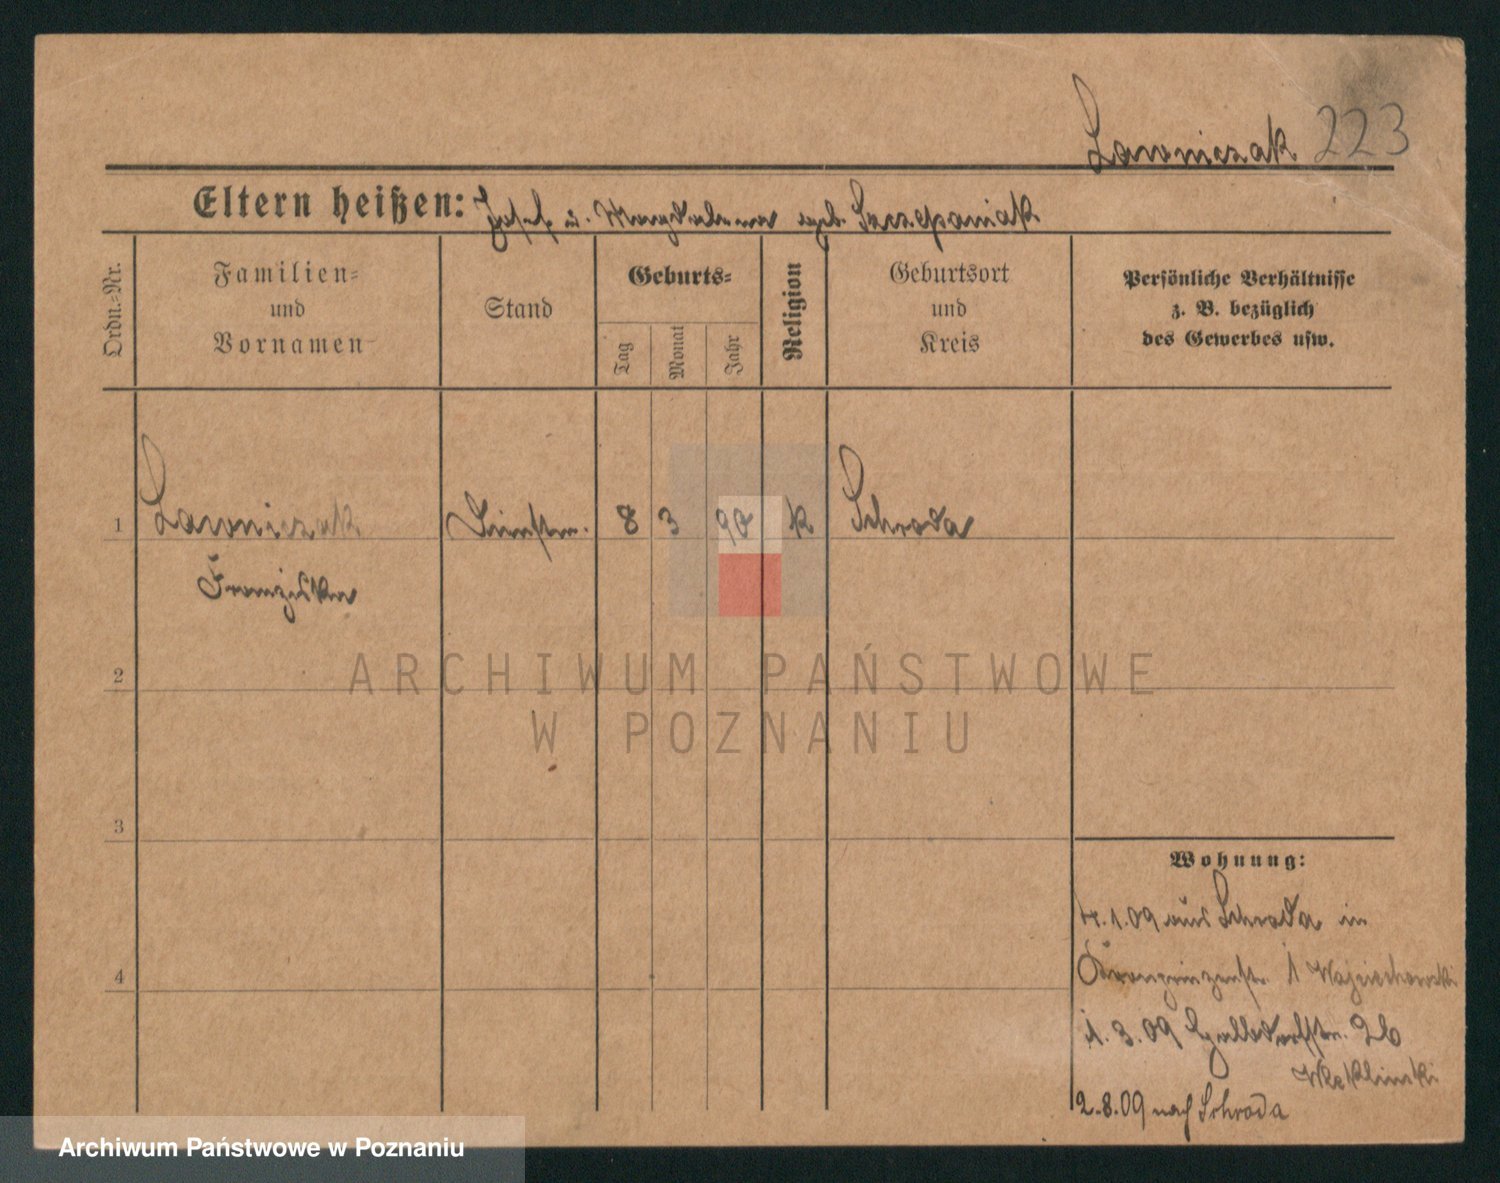 Lawniczak 223
Eltern heißen: Josef u. Magdalena geb. Szczepaniak
Ordn.-Nr.
Familien-
und
Vornamen
Stand
Geburts-
Tag
Monat
Jahr
Religion
Geburtsort
und
Kreis
Persönliche Verhältnisse
z. B. bezüglich
des Gewerbes usw.
1 Lawniczak 8 3 90 k Schroda
Franziska
2
ARCHIWUM PAŃSTWOWE
W POZNANIU
3
Wohnung:
4.1.09 aus Schroda in
4
Kronprinzenstr. 1 Wojciechowski
1.3.09 26
2.8.09 nach Schroda
Archiwum Państwowe w Poznaniu